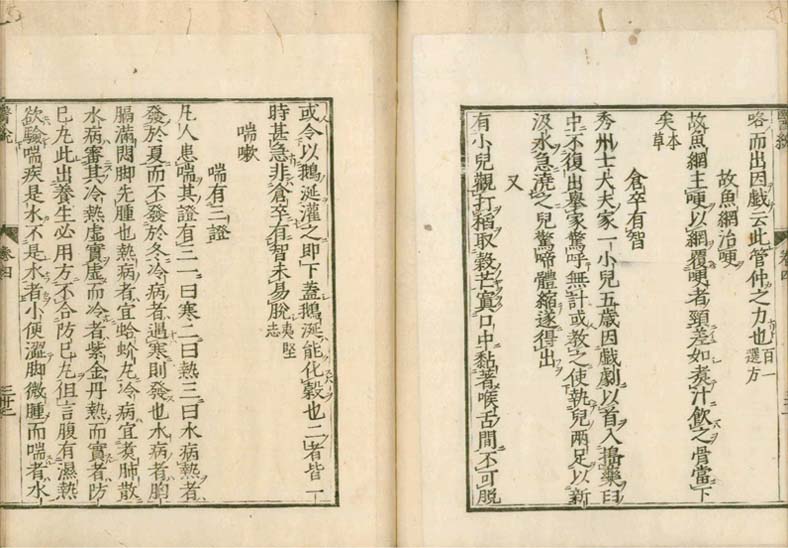 略而出因戲云此管仲之力也百一選方
故魚網治哽
故魚網主哽以網覆哽者頸差如煑汁飲之骨當下
矣本草
倉卒有智
秀州士大夫家一小兒五歲因戲劇以首入搗藥臼
中不復出舉家驚呼無計或敎之使執兒兩足以新
汲水急澆之兒驚啼體縮遂得出
又
有小兒觀打稻取穀芒寘口中黏著喉舌間不可脱
或令以鵝涎灌之即下蓋鵝涎能化穀也二者皆一
時甚急非倉卒有智未易脫夷堅志
喘嗽
喘有三證
凡人患喘其證有三一曰寒二曰熱三曰水病熱者
發於夏而不發於冬冷病者遇寒則發也水病者胸
膈滿悶脚先腫也熱病者宜蛤蚧丸冷病宜煑肺散
水病審其冷熱虛實虛而冷者紫金丹熱而實者防
已丸此出養生必用方不合防已丸但言腹有濕熱
欲驗喘疾是水不是水者小便澀脚微腫而喘者水
醫說
卷四
三十二